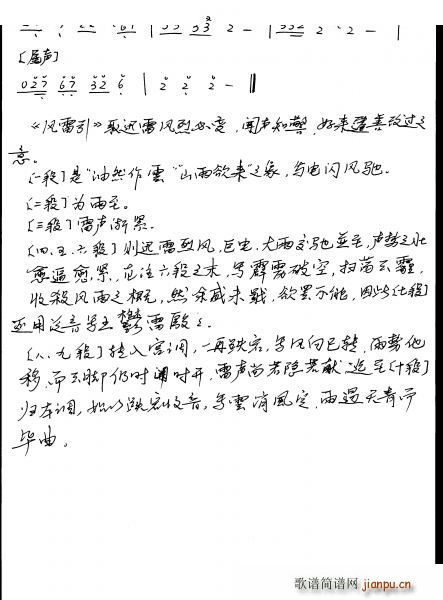 [尾声]
027 67 32 6 | 2 2 2 — ‖
《风雷引》取迅雷风烈必变，闻声知警，好来迁善改过之
意。
[一段]是“油然作雲”“山雨欲来”之象，与电闪风驰。
[二段]为雨至。
[三段]雷声渐紧。
[四、五、六段]则迅雷烈风，巨电、大雨交驰並至，声势之壮
愈逼愈紧，六段之末，写霹雳破空，扫荡云霾，
收殺风雨之相，然余威未戢，欲罢不能，因此[七段]
还用
[八、九段]转入宫调，一再跌宕，写风向已转，雨势他
移，而云脚仍时闭时开，雷声尚若隐若献 迨至[十段]
归本调，始以跌宕收音，写雲消風定，雨過天青而
毕曲。
歌谱简谱网
jianpu.cn